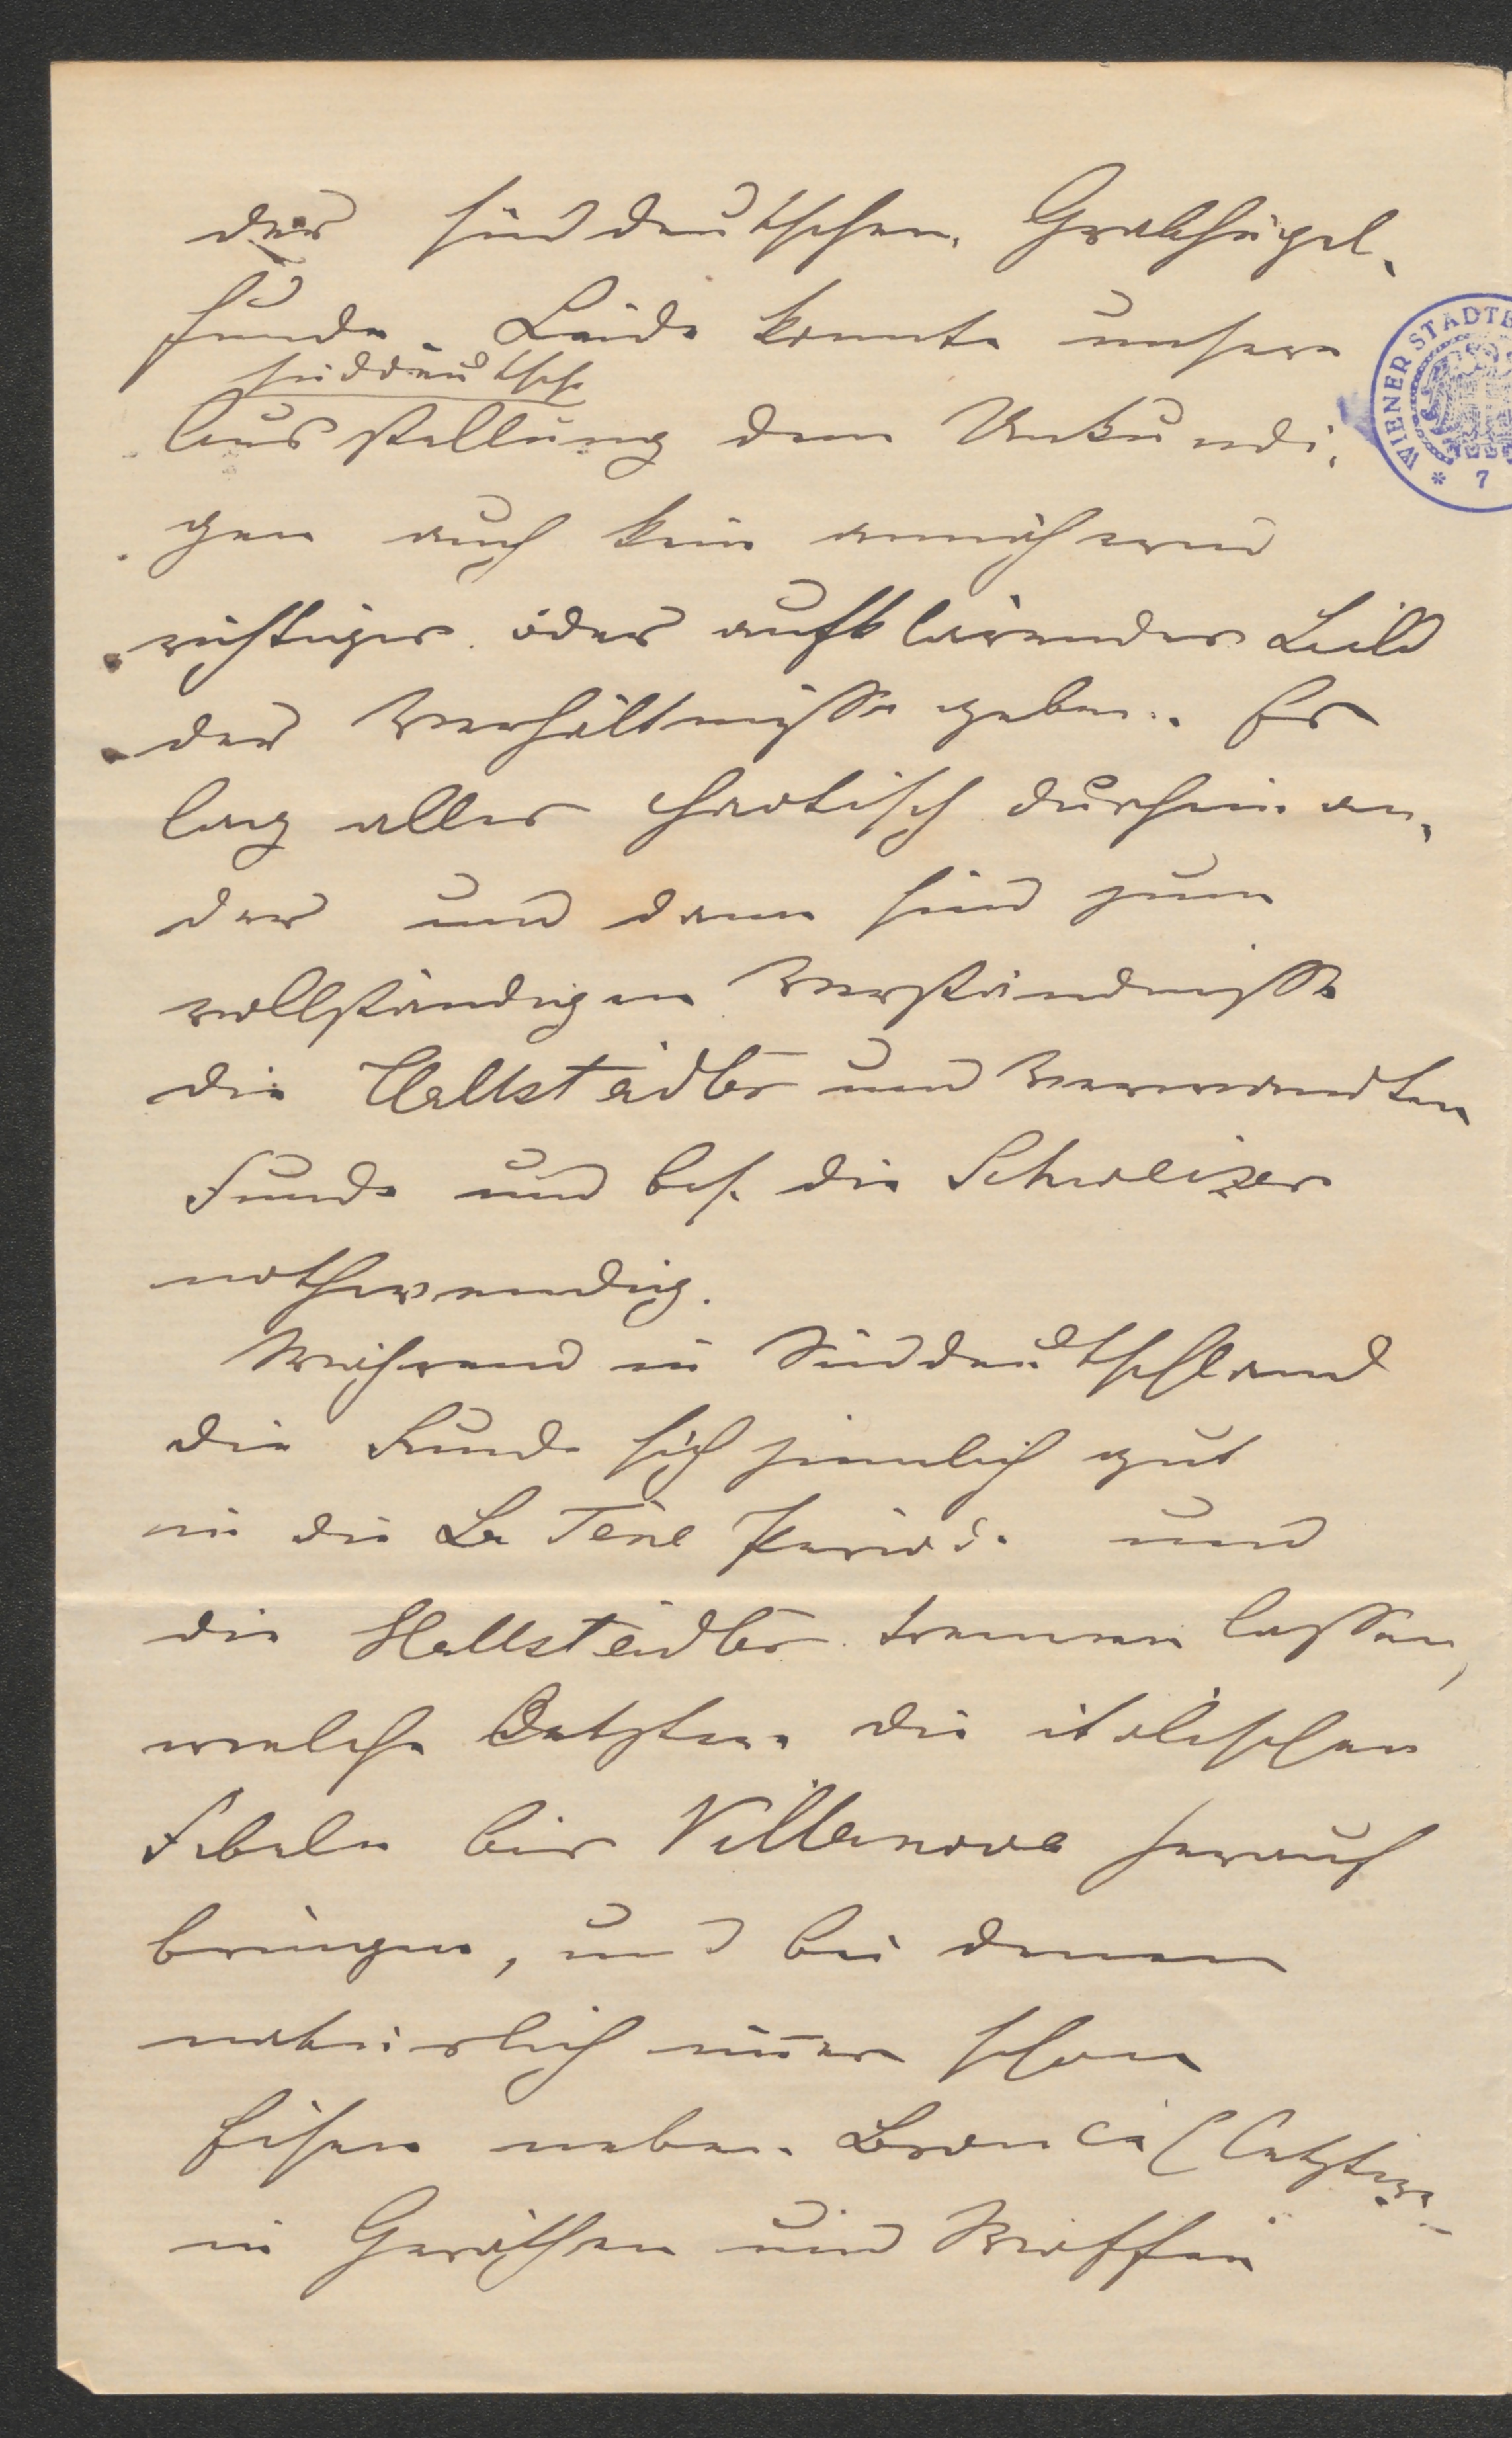 der süddeutschen Grabhügel,
funde. Leider konnte unsere
süddeutsche
Ausstellung dem Unkundi,
gen auch kein annähernd
richtiges oder aufklärendes Bild
der Verhältnisse geben. Es
lag alles chaotisch durcheinan,
der und dann sind zum
vollständigen Verständnisse
die Hallstädter und verwandten
Funde und bes. die Schweizer
nothwendig.
Während in Süddeutschland
die Funde sich ziemlich gut
in die La Tène Periode und
die Hallstädter trennen lassen,
welche Letztere die italischen
Fibeln bis Villanova herauf
bringen, und bei denen
natürlich immer schon
Eisen neben Bronce (letztere
in Geräthen und Waffen
WIENER STADTB
* 7